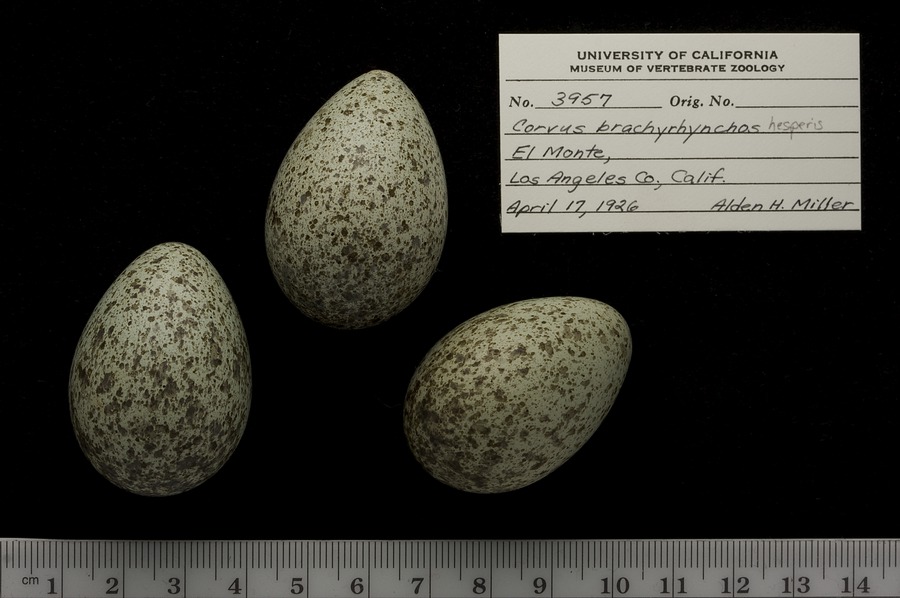 UNIVERSITY OF CALIFORNIA
MUSEUM OF VERTEBRATE ZOOLOGY
No. 3957 Orig. No.
Corvus brachyrhynchos hesperis
El Monte,
Los Angeles Co., Calif.
April 17, 1926 Alden H. Miller
cm 1 2 3 4 5 6 7 8 9 10 11 12 13 14